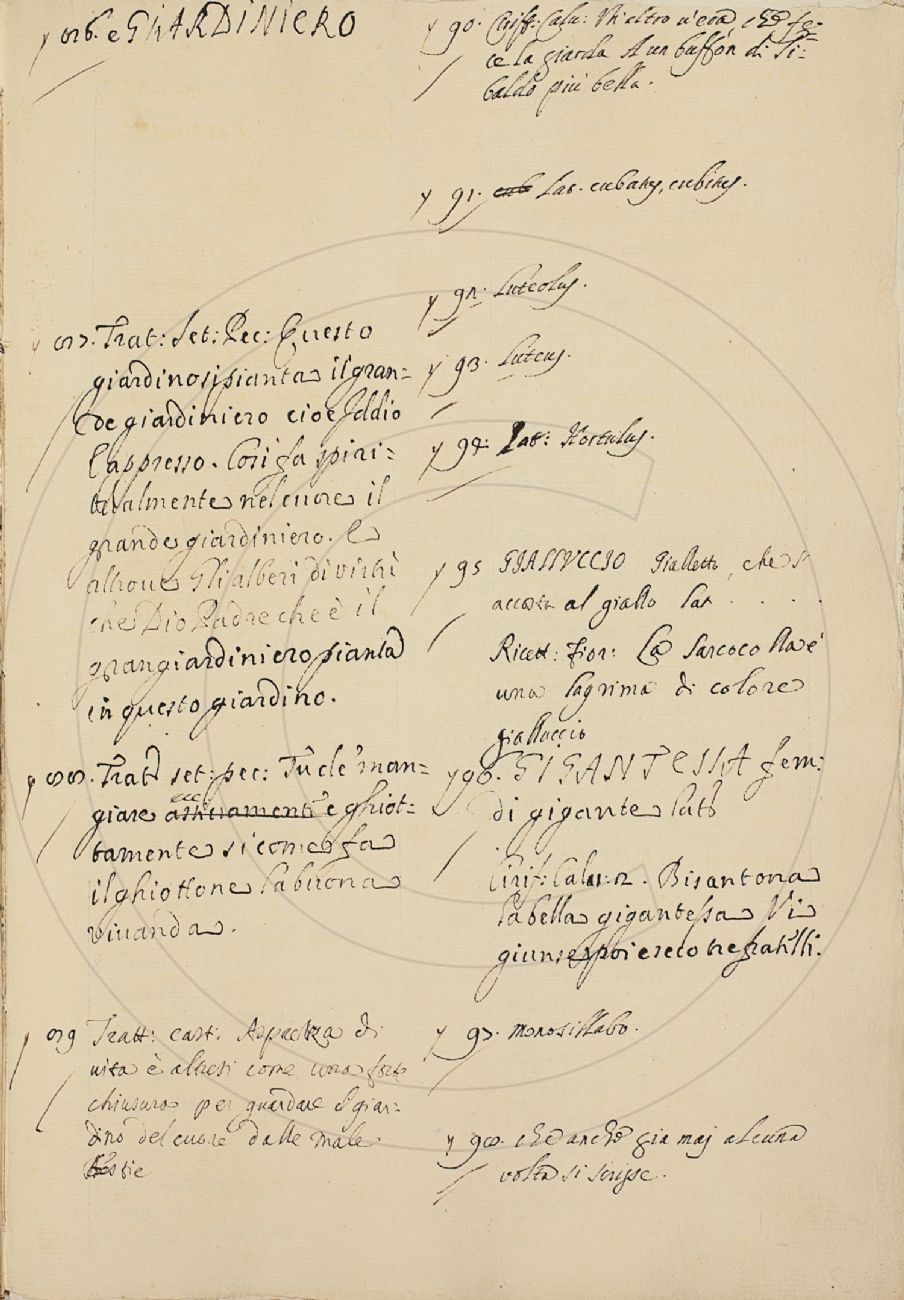 86. e GIARDINIERO
87. Trat: Set: Pec: Questo
giardino si pianta il gran=
de giardiniero cioe Iddio
l'appresso. Così fa spiri=
tualmente nel cuore il
grande giardiniero. E
altroue Gli alberi di virtù
che Dio Padre che è il
gran giardiniero pianta
in questo giardino.
88. Tratt set: pec: Tu de' man=
giare e ghiot=
tamente si come fa
il ghiottone la buona
viuanda.
89 Tratt: cast: Aspreza di
uita è altresi come una forte
chiusura per guardare il giar=
dino del cuore dalle male
bestie
90. Ciriff: Calu: un altro u'era che fe=
ce la giarda A un buffon di Ti=
baldo più bella.
91. Lat. cubans, cubitus.
92. Luteolus.
93. Luteus.
94. Lat: Hortulus.
95 GIALLVCCIO Gialletto, che s'
accosta al giallo Lat . . . .
Ricett: Fior: La Sarcocolla è
una lagrima di colore
gialluccio
96. GIGANTESSA fem:
di gigante Lat
Cirif: Calu: 2. Bisantona
la bella gigantessa Vi
giunse poi e seco tre fratelli.
97. monosillabo.
98. che anche gia maj alcuna
volta si scrisse.